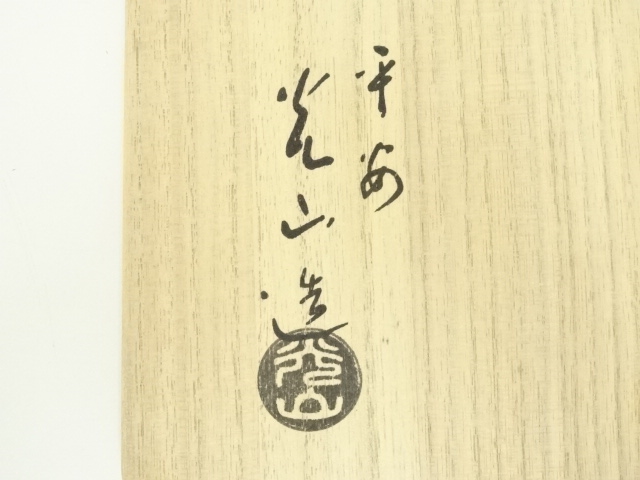 平安
光山造
光山